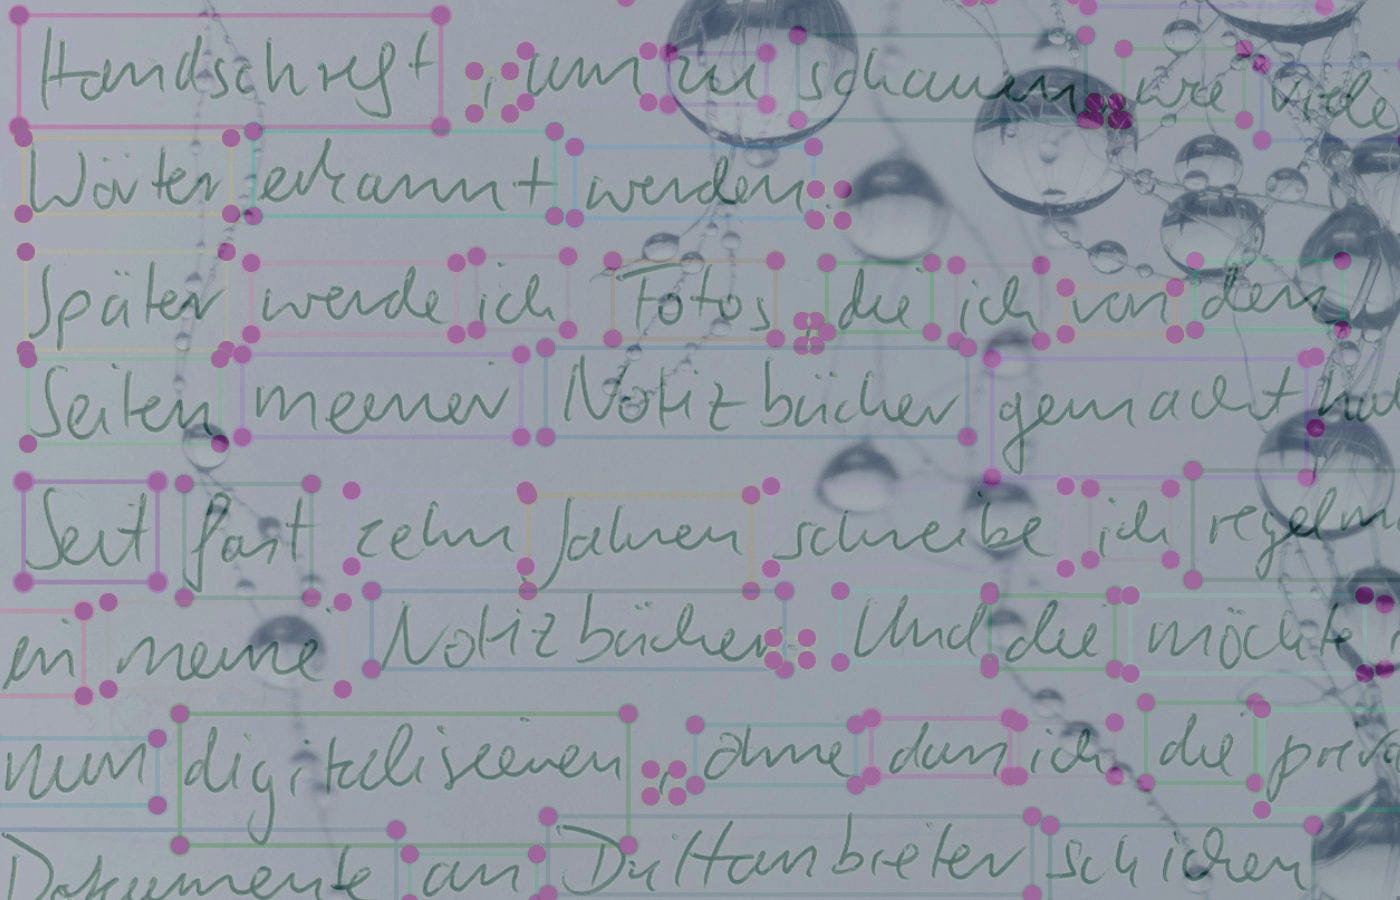 Handschrift, um zu schauen, wie viele
Wörter erkannt werden.
Später werde ich Fotos, die ich von den
Seiten meiner Notizbücher gemacht
Seit fast zehn Jahren schreibe ich regelm
in meine Notizbücher. Und die möchte
nun digitalisieren, ohne dass ich die priva
Dokumente an Drittanbieter schicken